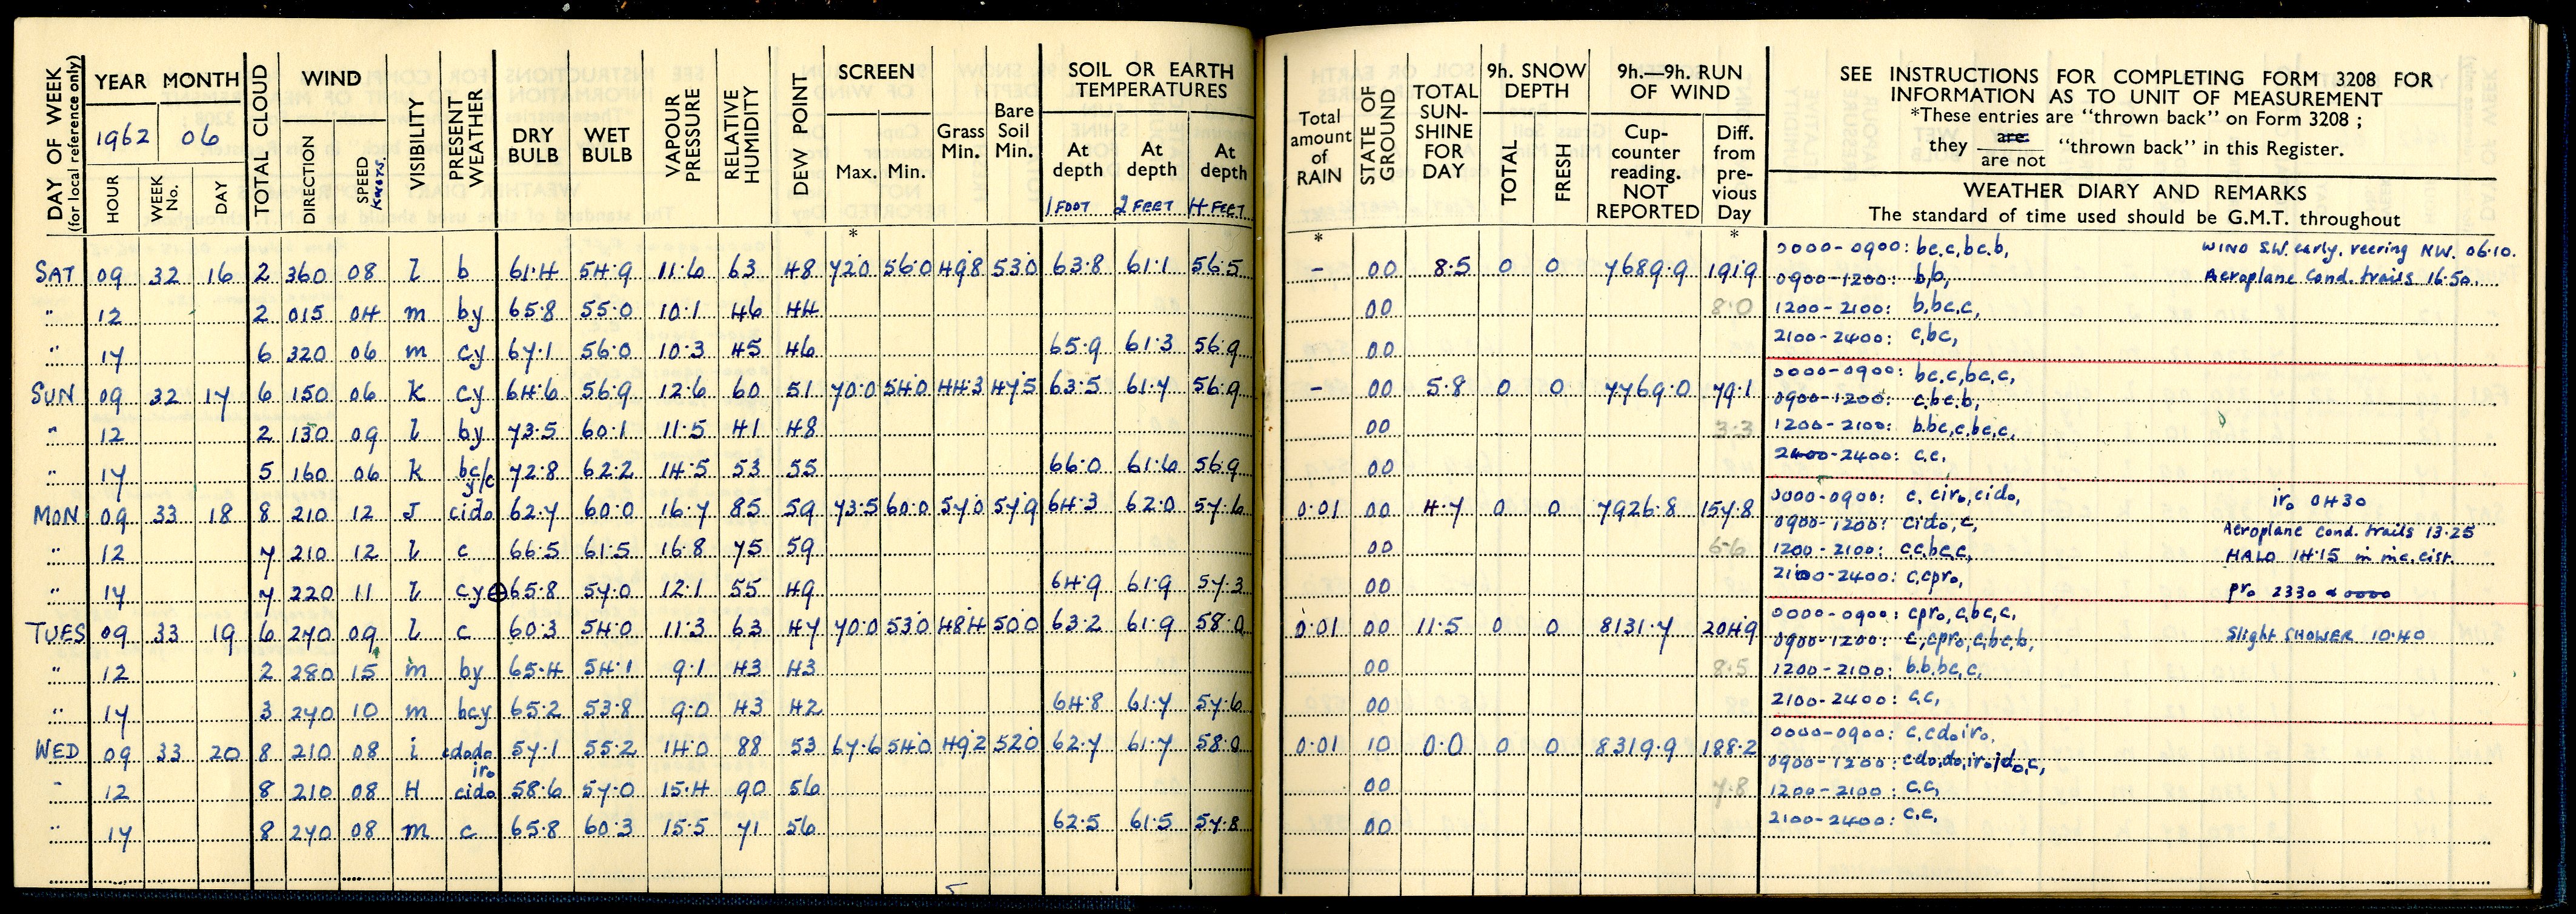 DAY OF WEEK
(for local reference only)
YEAR MONTH
1962 06
HOUR WEEK No. DAY
TOTAL CLOUD
WIND
DIRECTION SPEED Knots.
VISIBILITY
PRESENT WEATHER
DRY BULB
WET BULB
VAPOUR PRESSURE
RELATIVE HUMIDITY
DEW POINT
SCREEN
Max. Min.
*
Grass Min.
Bare Soil Min.
SOIL OR EARTH TEMPERATURES
At depth At depth At depth
1 FOOT 2 FEET 4 FEET
Total amount of RAIN
*
STATE OF GROUND
TOTAL SUN-SHINE FOR DAY
9h. SNOW DEPTH
TOTAL FRESH
9h.—9h. RUN OF WIND
Cup-counter reading. NOT REPORTED
Diff. from pre-vious Day
*
SEE INSTRUCTIONS FOR COMPLETING FORM 3208 FOR
INFORMATION AS TO UNIT OF MEASUREMENT
*These entries are "thrown back" on Form 3208 ;
they are are not "thrown back" in this Register.
WEATHER DIARY AND REMARKS
The standard of time used should be G.M.T. throughout
SAT 09 32 16 2 360 08 l b 61.4 54.9 11.6 63 48 72.0 56.0 49.8 53.0 63.8 61.1 56.5 - 00 8.5 0 0 7689.9 191.9 0000-0900: bc,c,bc,b, WIND SW. early, veering NW. 06.10.
0900-1200: b,b, Aeroplane Cond. trails 16.50.
" 12 2 015 04 m by 65.8 55.0 10.1 46 44 00 8.0 1200-2100: b,bc,c,
" 17 6 320 06 m cy 67.1 56.0 10.3 45 46 65.9 61.3 56.9 00 2100-2400: c,bc,
SUN 09 32 17 6 150 06 k cy 64.6 56.9 12.6 60 51 70.0 54.0 44.3 47.5 63.5 61.7 56.9 - 00 5.8 0 0 7769.0 79.1 0000-0900: bc,c,bc,c,
0900-1200: c,bc,b,
" 12 2 130 09 l by 73.5 60.1 11.5 41 48 00 3.3 1200-2100: b,bc,c,bc,c,
" 17 5 160 06 k bc/c y 72.8 62.2 14.5 53 55 66.0 61.6 56.9 00 2400-2400: c,c,
MON 09 33 18 8 210 12 J cido 62.7 60.0 16.7 85 59 73.5 60.0 57.0 57.9 64.3 62.0 57.6 0.01 00 4.7 0 0 7926.8 157.8 0000-0900: c, ciro,cido, iro 0430
0900-1200: cido,c, Aeroplane Cond. trails 13.25
" 12 7 210 12 l c 66.5 61.5 16.8 75 59 00 6.6 1200-2100: c,c,bc,c, HALO 14.15 in inc. cist.
" 17 7 220 11 l cy⊕ 65.8 57.0 12.1 55 49 64.9 61.9 57.3 00 2100-2400: c,cpro, pro 2330 0000
TUES 09 33 19 6 270 09 l c 60.3 54.0 11.3 63 47 70.0 53.0 48.4 50.0 63.2 61.9 58.0 0.01 00 11.5 0 0 8131.7 204.9 0000-0900: cpro,c,bc,c,
0900-1200: c,cpro,c,bc,b, Slight SHOWER 10.40
" 12 2 280 15 m by 65.4 54.1 9.1 43 43 00 8.5 1200-2100: b,b,bc,c,
" 17 3 270 10 m bcy 65.2 53.8 9.0 43 42 64.8 61.7 57.6 00 2100-2400: c,c,
WED 09 33 20 8 210 08 i cdodo iro 57.1 55.2 14.0 88 53 67.6 54.0 49.2 52.0 62.7 61.7 58.0 0.01 10 0.0 0 0 8319.9 188.2 0000-0900: c,cdo,iro,
0900-1200: cdo,do,iro/do,c,
" 12 8 210 08 H cido 58.6 57.0 15.4 90 56 00 7.8 1200-2100: c,c,
" 17 8 270 08 m c 65.8 60.3 15.5 71 56 62.5 61.5 57.8 00 2100-2400: c,c,